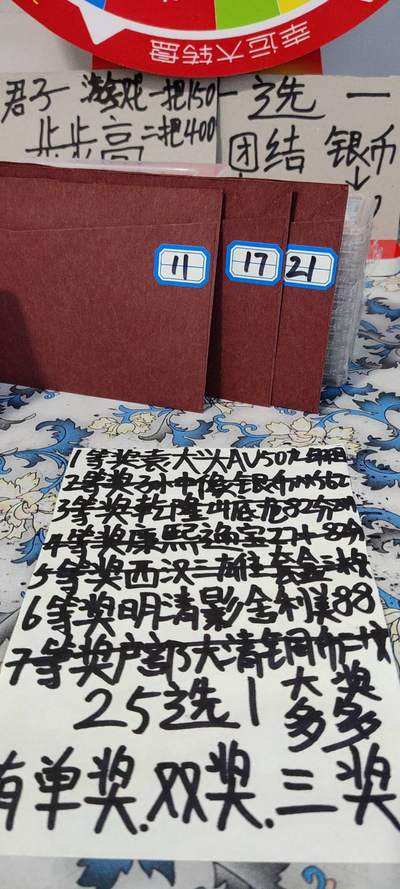 幸运大转盘
君子 游戏 一把150
步步高 二把400
一选一
团结 银币
11
17
21
1等奖袁大头AU50
2等奖孙中像银币MS62
3等奖乾隆 82分
4等奖康熙通宝
5等奖西汉三 套盒三枚
6等奖明清影舍利美88
7等奖户部大清铜币二枚
25选1
大奖多多
有单奖.双奖.三奖